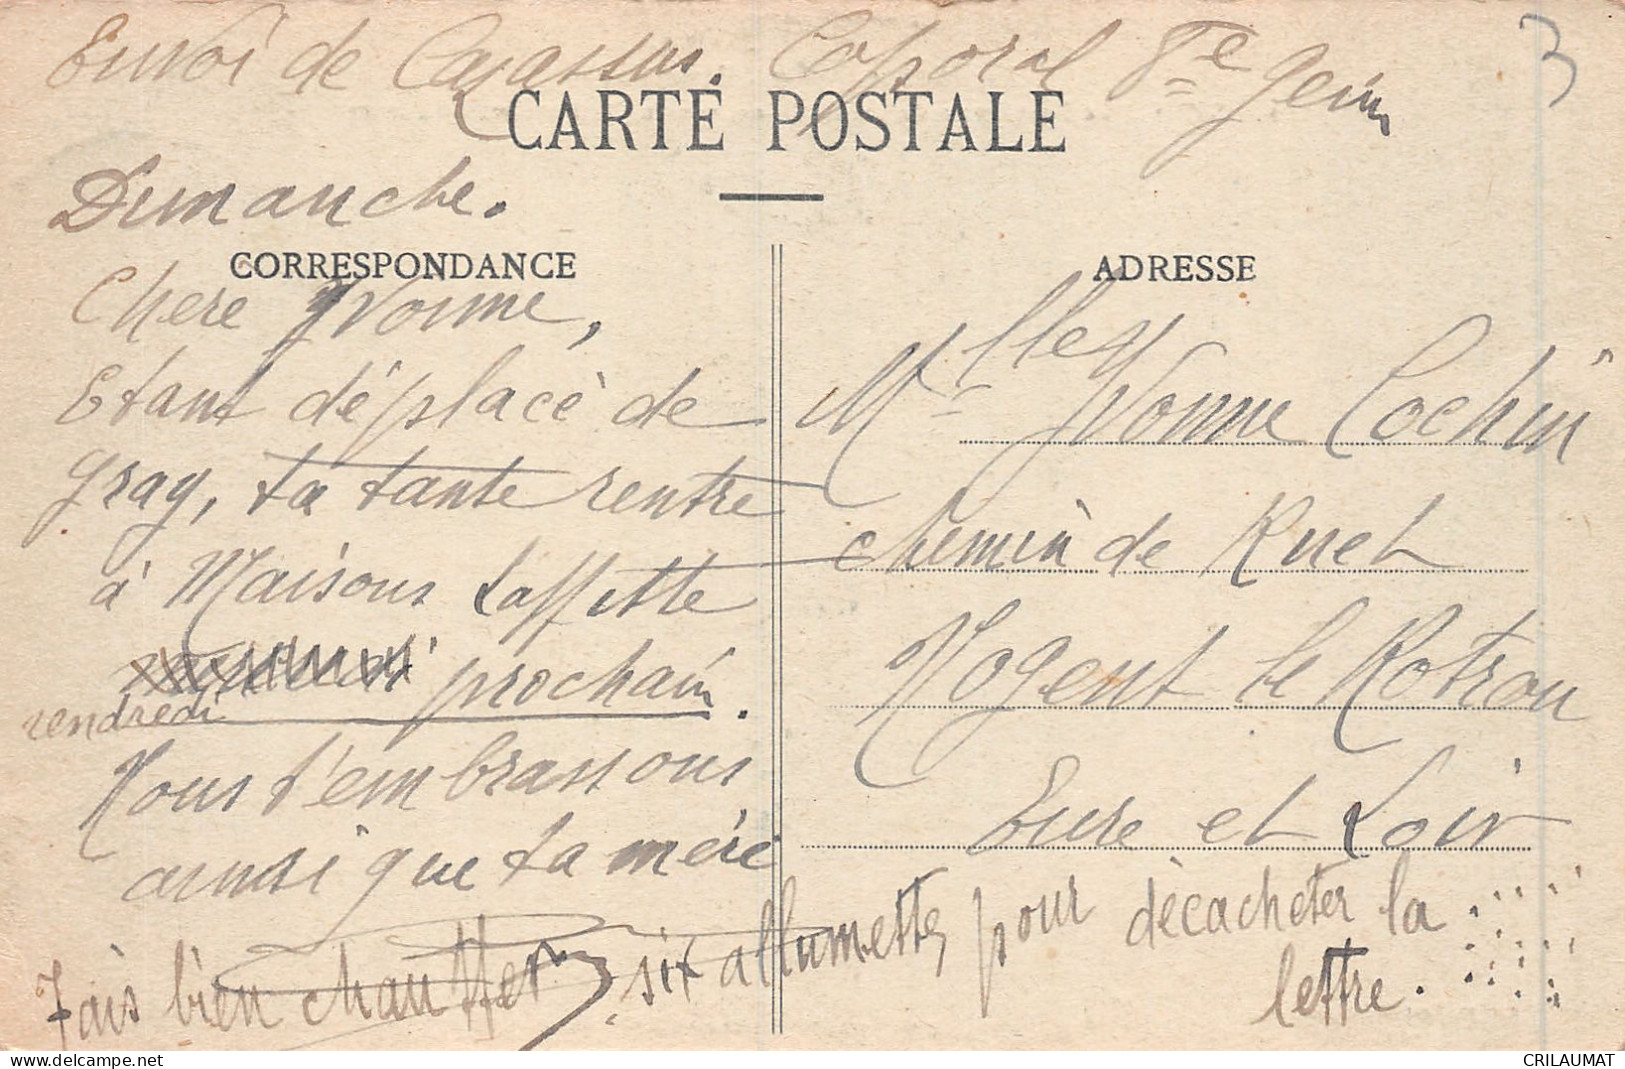 Envoi de Cazassus. Caporal 8e Génie
3
CARTE POSTALE
Dimanche.
CORRESPONDANCE
Chere Yvonne,
Etant déplacé de
Gray, ta tante rentre
à Maisons Laffitte
vendredi prochain.
Nous t'embrassons
ainsi que ta mère
ADRESSE
Mlle Yvonne Cochin
chemin de Ruet
Nogent le Rotrou
Eure et Loir
Fais bien chauffer, six allumettes pour décacheter la
lettre.
CRILAUMAT